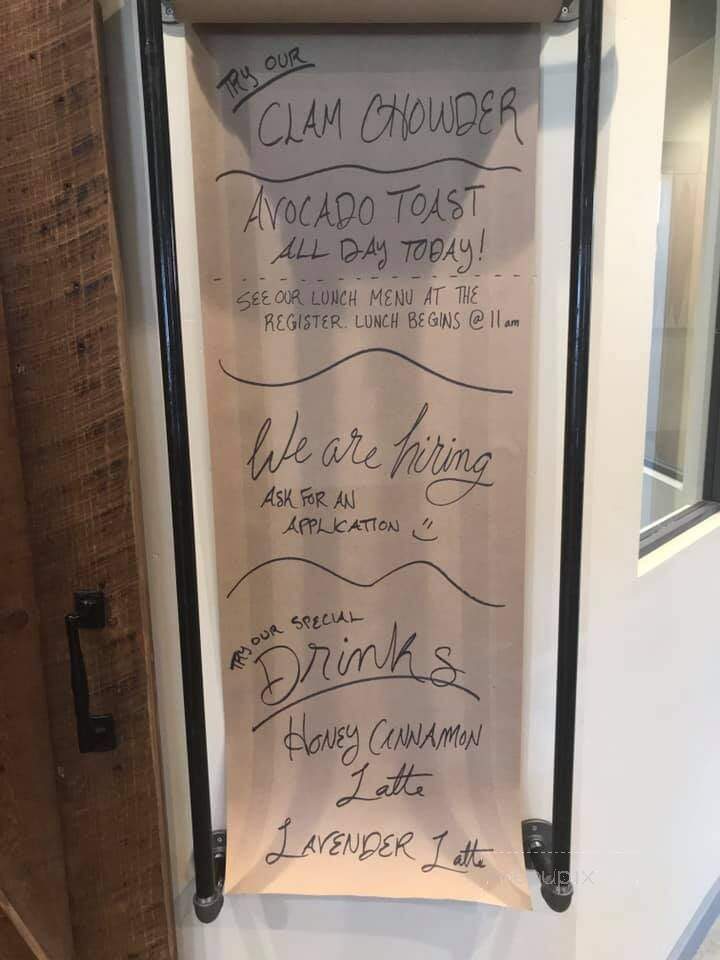 TRY OUR
CLAM CHOWDER
AVOCADO TOAST
ALL DAY TODAY!
SEE OUR LUNCH MENU AT THE
REGISTER. LUNCH BEGINS @ 11 am
We are hiring
ASK FOR AN
APPLICATION
TRY OUR SPECIAL
Drinks
HONEY CINNAMON
Latte
LAVENDER Latte